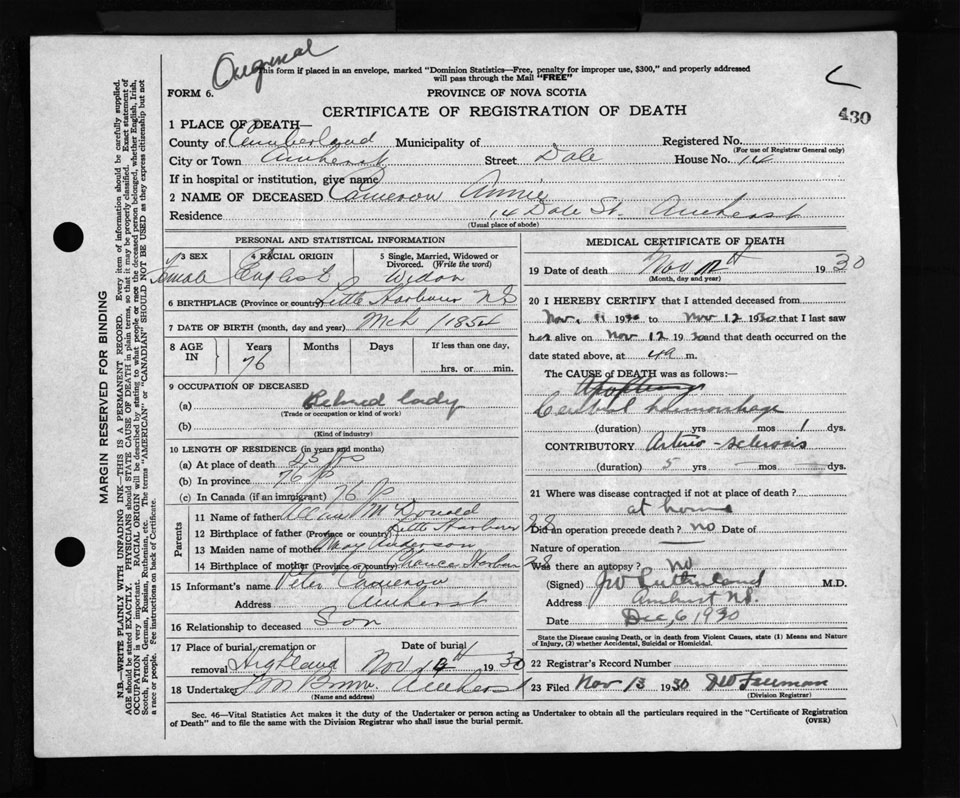 Original
This form if placed in an envelope, marked "Dominion Statistics—Free, penalty for improper use, $300," and properly addressed
will pass through the Mail "FREE"
FORM 6.
PROVINCE OF NOVA SCOTIA
CERTIFICATE OF REGISTRATION OF DEATH
430
1 PLACE OF DEATH—
County of Cumberland Municipality of Registered No.
(For use of Registrar General only)
City or Town Amherst Street Dale House No. 14
If in hospital or institution, give name
2 NAME OF DECEASED Cameron Annie
Residence 14 Dale St. Amherst
(Usual place of abode)
PERSONAL AND STATISTICAL INFORMATION
3 SEX 4 RACIAL ORIGIN 5 Single, Married, Widowed or
Divorced. (Write the word)
Female English Widow
6 BIRTHPLACE (Province or country) Little Harbour NS
7 DATE OF BIRTH (month, day and year) Mch 1854
8 AGE IN Years Months Days If less than one day,
76 hrs. or min.
9 OCCUPATION OF DECEASED
(a) Retired lady
(Trade or occupation or kind of work)
(b)
(Kind of industry)
10 LENGTH OF RESIDENCE (in years and months)
(a) At place of death
(b) In province 76
(c) In Canada (if an immigrant) 76
Parents
11 Name of father Allan McDonald
12 Birthplace of father (Province or country) Little Harbour NS
13 Maiden name of mother Anderson
14 Birthplace of mother (Province or country) Chance Harbour NS
15 Informant's name Peter Cameron
Address Amherst
16 Relationship to deceased Son
17 Place of burial, cremation or Date of burial
removal Highland Nov 14th, 1930
18 Undertaker Amherst
(Name and address)
MEDICAL CERTIFICATE OF DEATH
19 Date of death Nov 12th 1930
(Month, day and year)
20 I HEREBY CERTIFY that I attended deceased from
Nov. 11 1930 to Nov 12 1930 that I last saw
her alive on Nov 12 1930 and that death occurred on the
date stated above, at 4a m.
The CAUSE of DEATH was as follows:
Cerebral haemorrhage
(duration) yrs mos 1 dys.
CONTRIBUTORY Arterio-sclerosis
(duration) 5 yrs — mos — dys.
21 Where was disease contracted if not at place of death?
at home
Did an operation precede death? no Date of
Nature of operation —
Was there an autopsy? No
(Signed) JW Rutherland M.D.
Address Amherst N.S.
Date Dec, 6 1930
State the Disease causing Death, or in death from Violent Causes, state (1) Means and Nature
of Injury, (2) whether Accidental, Suicidal or Homicidal.
22 Registrar's Record Number
23 Filed Nov 13 1930 Freeman
(Division Registrar)
Sec. 46—Vital Statistics Act makes it the duty of the Undertaker or person acting as Undertaker to obtain all the particulars required in the "Certificate of Registration
of Death" and to file the same with the Division Registrar who shall issue the burial permit.
(OVER)
MARGIN RESERVED FOR BINDING
N.B.—WRITE PLAINLY WITH UNFADING INK—THIS IS A PERMANENT RECORD. Every item of information should be carefully supplied.
AGE should be stated EXACTLY. PHYSICIANS should STATE CAUSE OF DEATH in plain terms, so that it may be properly classified. Exact statement of
OCCUPATION is very important. RACIAL ORIGIN will be described by stating to what people or race the deceased person belonged, whether English, Irish,
Scotch, French, German, Russian, Ruthenian, etc. The terms "AMERICAN" or "CANADIAN" SHOULD NOT BE USED as they express citizenship but not
a race or people. See instructions on back of Certificate.